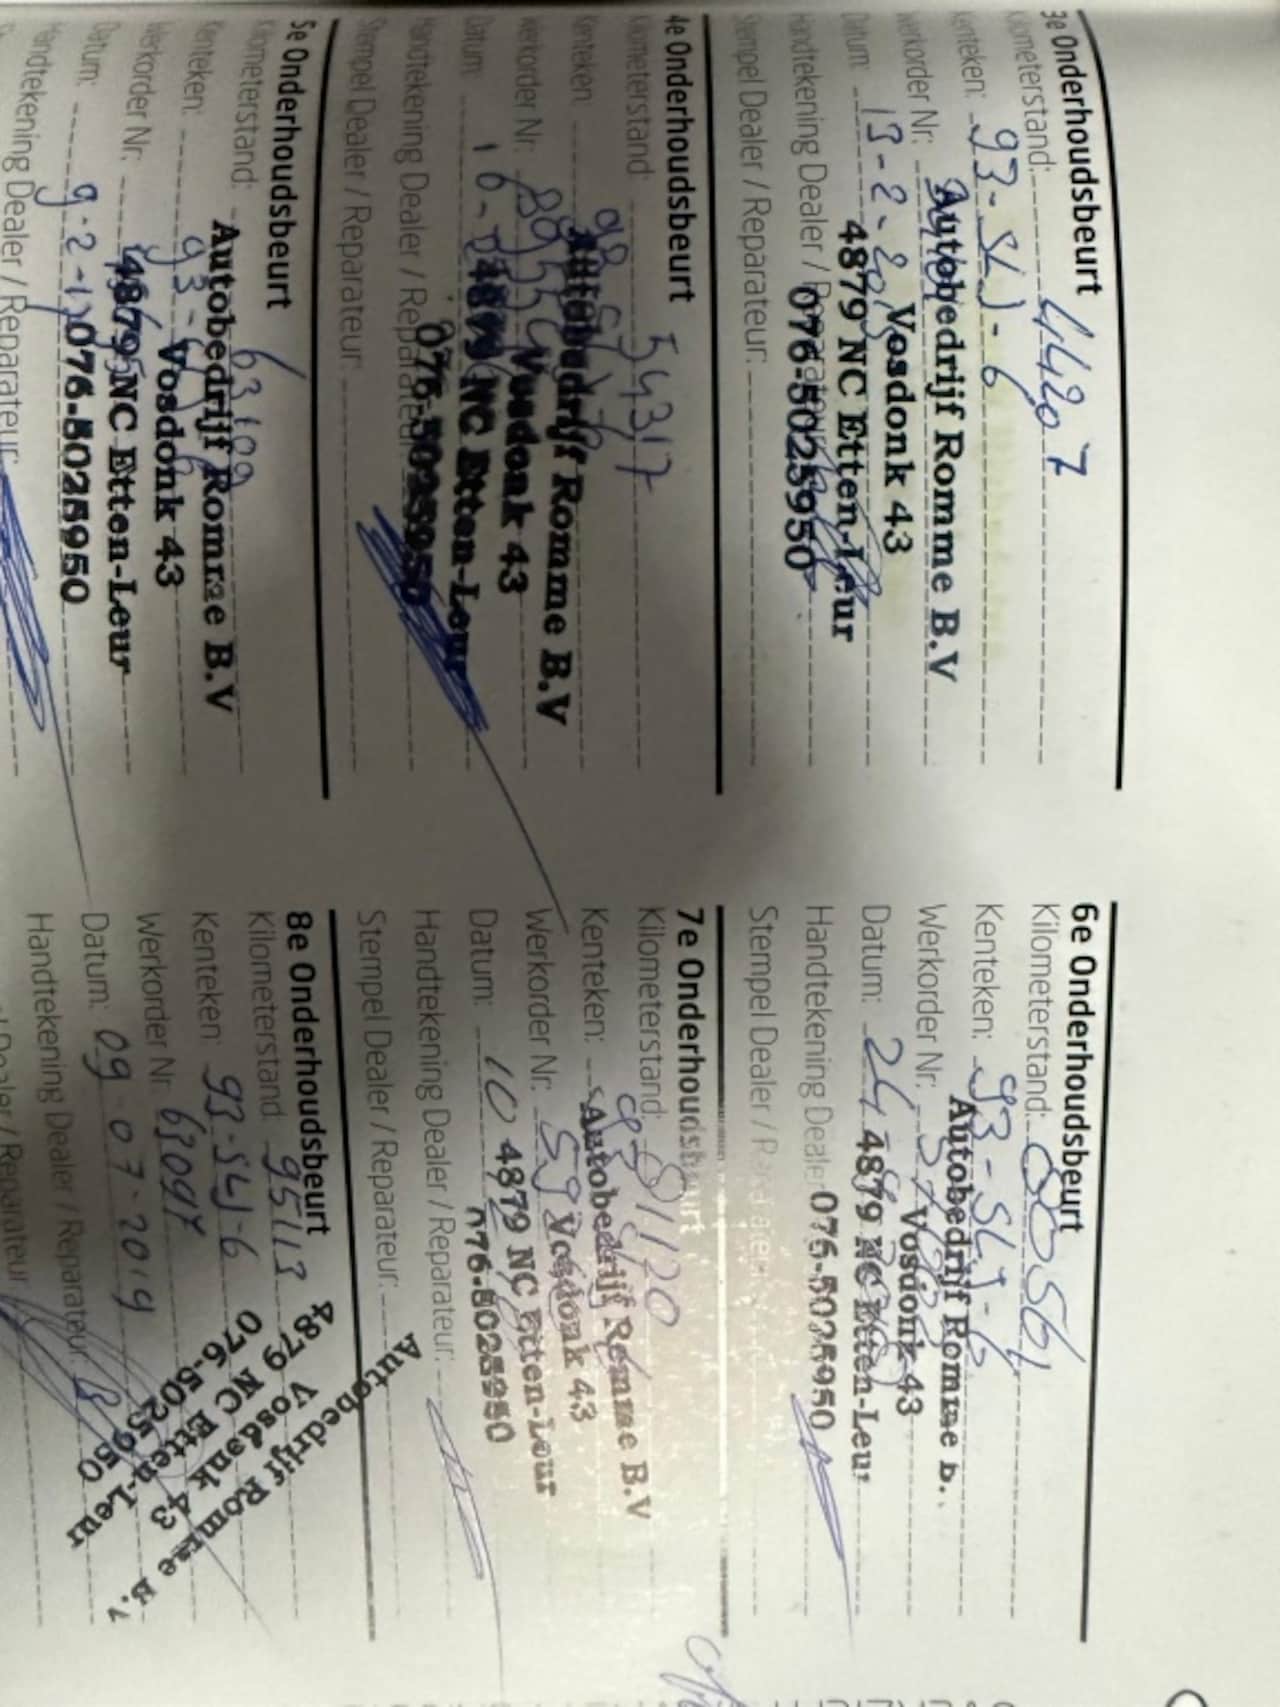 3e Onderhoudsbeurt
Kilometerstand: 44207
Kenteken: 93-SLJ-6
Werkorder Nr.:
Autobedrijf Romme B.V
Datum: 13-2-
Vosdonk 43
4879 NC Etten-Leur
Handtekening Dealer /
076-5025950
Stempel Dealer / Reparateur:
4e Onderhoudsbeurt
Kilometerstand: 54317
Kenteken:
Autobedrijf Romme B.V
Werkorder Nr.:
Vosdonk 43
Datum: 16-
4879 NC Etten-Leur
Handtekening Dealer / Reparateur:
076-5025950
Stempel Dealer / Reparateur:
5e Onderhoudsbeurt
Kilometerstand: 63109
Autobedrijf Romme B.V
Kenteken: 93-
Vosdonk 43
Werkorder Nr.:
4879 NC Etten-Leur
Datum: 9-2-17
076-5025950
Handtekening Dealer / Reparateur:
6e Onderhoudsbeurt
Kilometerstand:
Kenteken: 93-SLJ-6
Autobedrijf Romme B.
Werkorder Nr.:
Vosdonk 43
Datum: 24
4879 NC Etten-Leur
Handtekening Dealer
076-5025950
Stempel Dealer /
7e Onderhoudsbeurt
Kilometerstand: 81120
Kenteken:
Autobedrijf Romme B.V
Werkorder Nr.:
Vosdonk 43
Datum: 10
4879 NC Etten-Leur
076-5025950
Handtekening Dealer / Reparateur:
Stempel Dealer / Reparateur:
8e Onderhoudsbeurt
Kilometerstand: 95113
Kenteken: 93-SLJ-6
Werkorder Nr.
Datum: 09-07-2019
Handtekening Dealer / Reparateur:
Autobedrijf Romme B.V
Vosdonk 43
4879 NC Etten-Leur
076-5025950